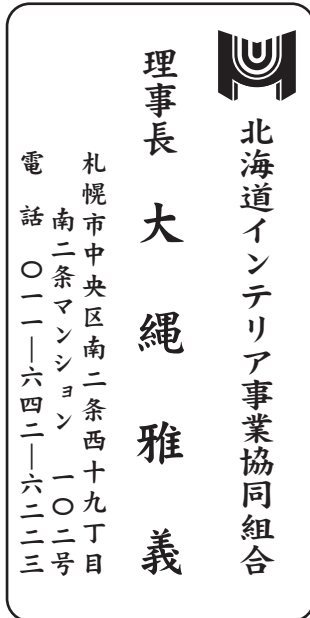 北海道インテリア事業協同組合
理事長 大繩雅義
札幌市中央区南二条西十九丁目
南二条マンション 一〇二号
電話 〇一一―六四二―六二二三